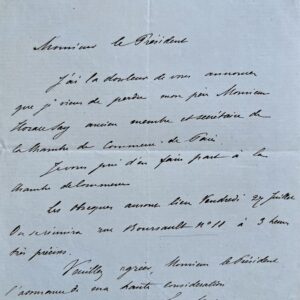 Monsieur le Président
J'ai la douleur de vous annoncer
que je viens de perdre mon père Monsieur
Horace Say ancien membre et secrétaire de
la Chambre de Commerce de Paris
Je vous prie d'en faire part à la
Chambre de Commerce
Les obsèques auront lieu Vendredi 27 Juillet
On se réunira rue Boursault n° 11 à 3 heures
très précises
Veuillez agréer, Monsieur le Président
l'assurance de ma haute considération